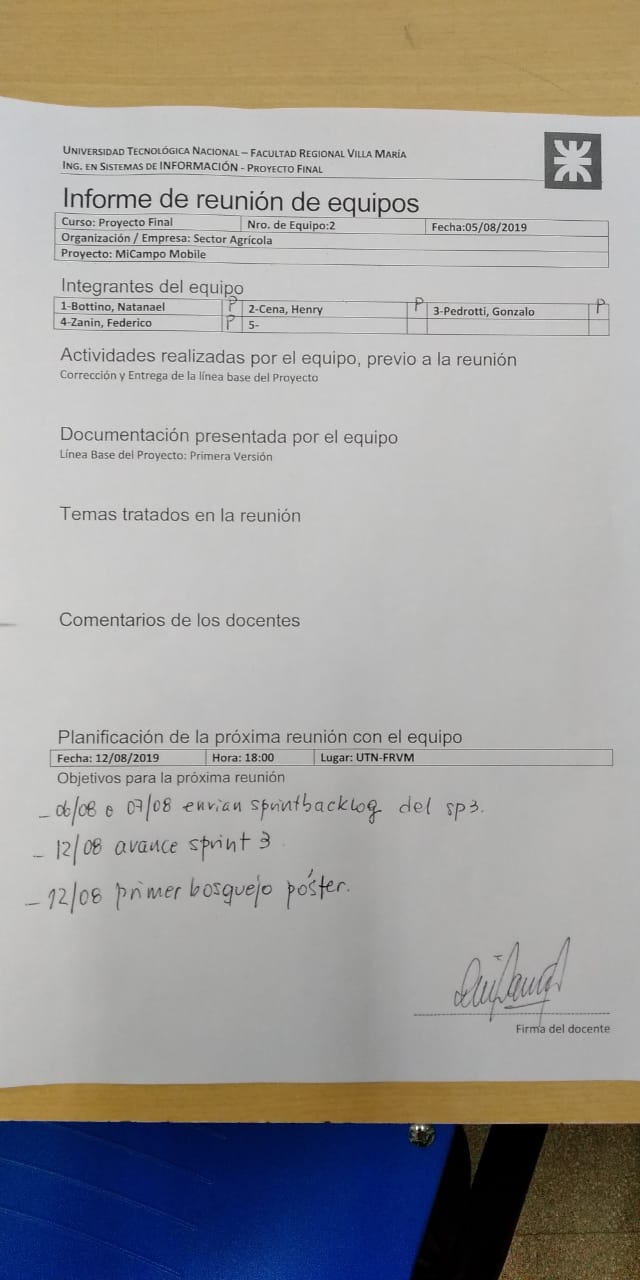 UNIVERSIDAD TECNOLÓGICA NACIONAL – FACULTAD REGIONAL VILLA MARÍA
ING. EN SISTEMAS DE INFORMACIÓN - PROYECTO FINAL
Informe de reunión de equipos
Curso: Proyecto Final Nro. de Equipo:2 Fecha:05/08/2019
Organización / Empresa: Sector Agrícola
Proyecto: MiCampo Mobile
Integrantes del equipo
1-Bottino, Natanael P 2-Cena, Henry P 3-Pedrotti, Gonzalo P
4-Zanin, Federico P 5-
Actividades realizadas por el equipo, previo a la reunión
Corrección y Entrega de la línea base del Proyecto
Documentación presentada por el equipo
Línea Base del Proyecto: Primera Versión
Temas tratados en la reunión
Comentarios de los docentes
Planificación de la próxima reunión con el equipo
Fecha: 12/08/2019 Hora: 18:00 Lugar: UTN-FRVM
Objetivos para la próxima reunión
- 06/08 o 07/08 envian sprintbacklog del sp3.
- 12/08 avance sprint 3
- 12/08 primer bosquejo póster.
Firma del docente